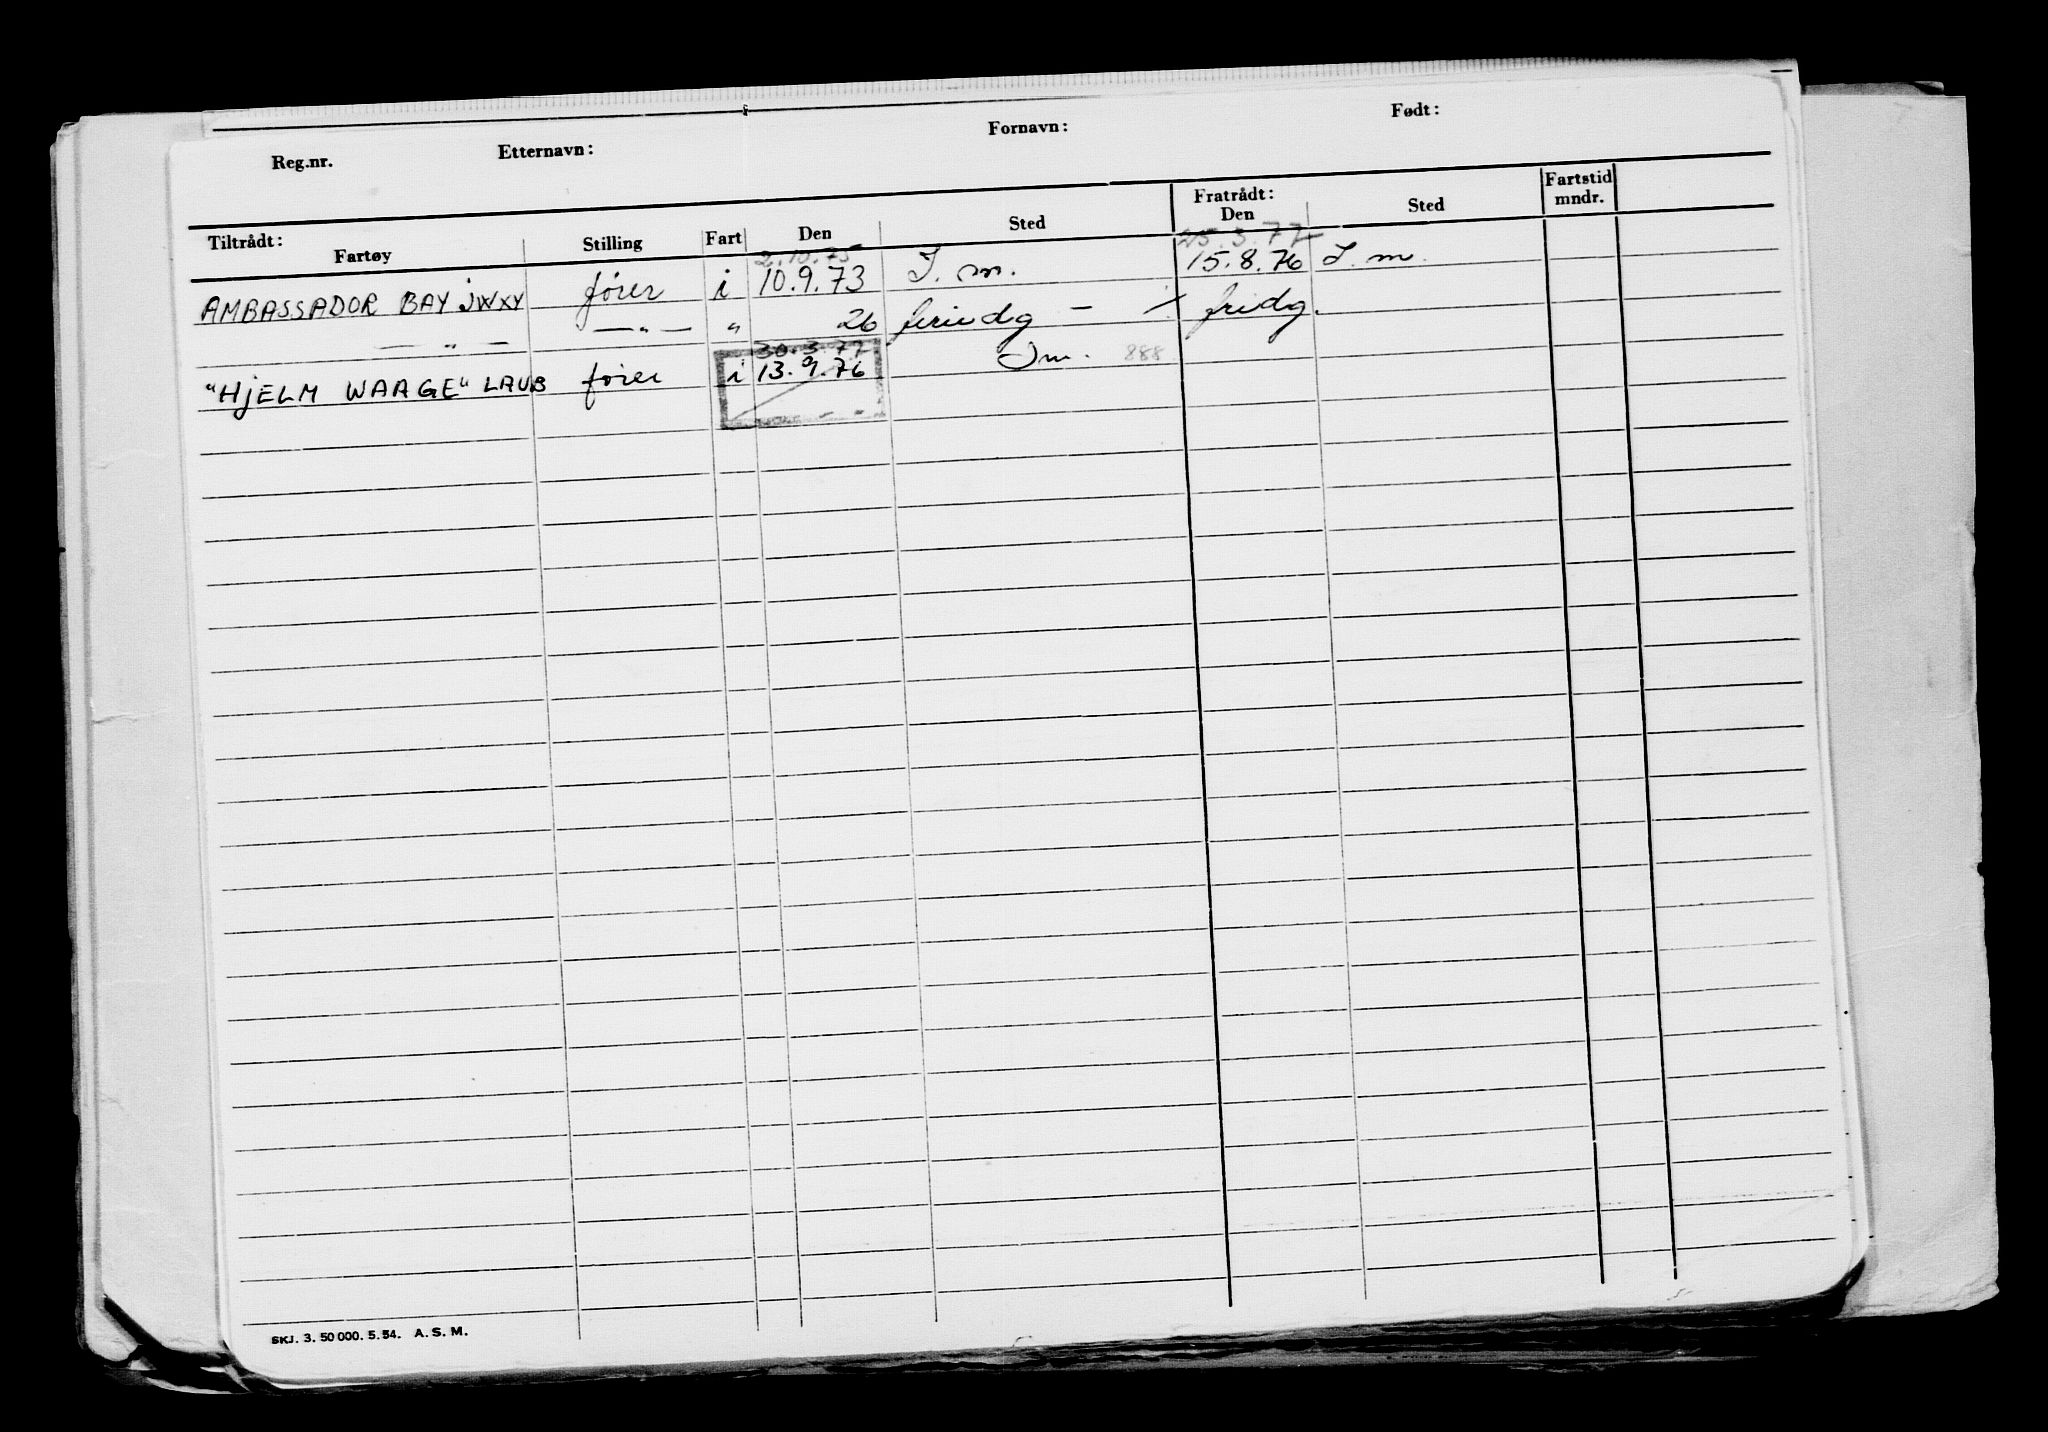 Reg.nr. Etternavn: Fornavn: Født:
Tiltrådt: Fratrådt: Fartstid
Fartøy Stilling Fart Den Sted Den Sted mndr.
2.10.75 25.3.77
AMBASSADOR BAY JWXY fører i 10.9.73 I. m. 15.8.76 I. m.
— " — — " — " 26 feriedg — ./. fridg.
30.3.77
"HJELM WAAGE" LAUB fører i 13.9.76 Im. 888
SKJ. 3. 50 000. 5. 54. A. S. M.